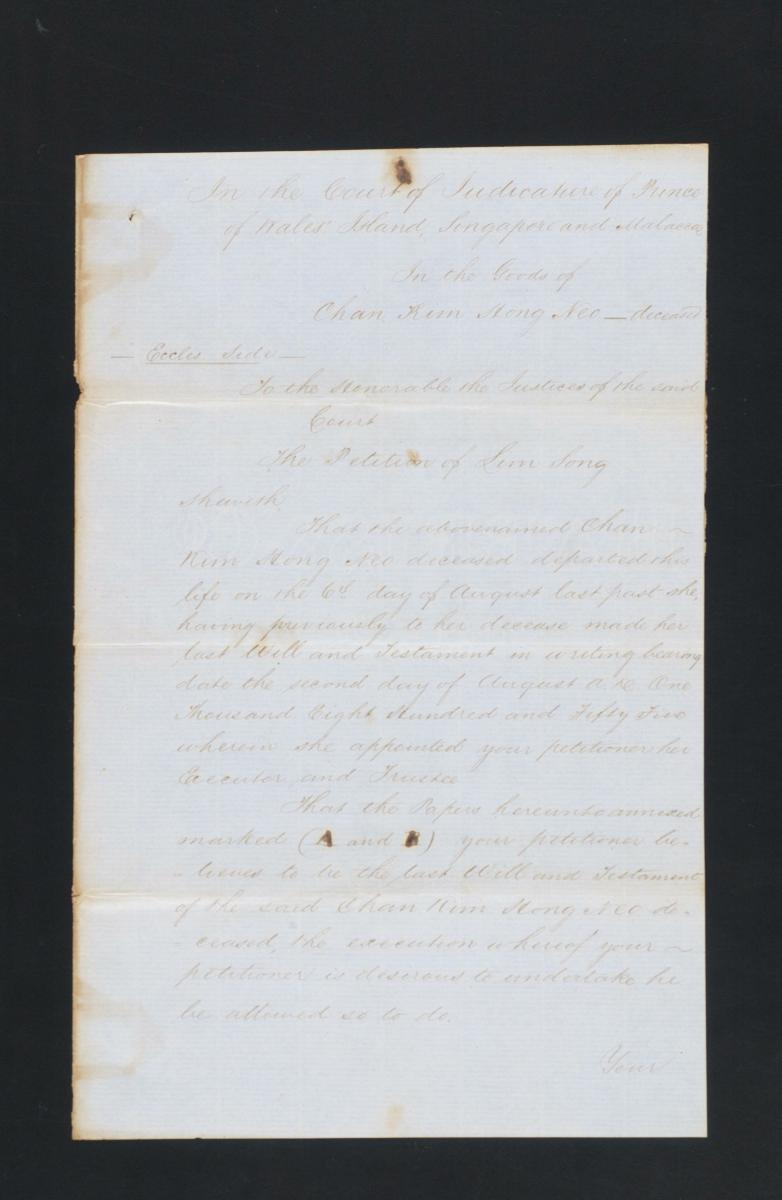 In the Court of Judicature of Prince
of Wales' Island, Singapore and Malacca
In the Goods of
Chan Kim Hong Neo — deceased
— Eccles. Side —
To the Honorable the Justices of the said
Court
The Petition of Lim Song
Sheweth
That the abovenamed Chan ~
Kim Hong Neo deceased departed this
life on the 6th day of August last past she,
having previously to her decease made her
last Will and Testament in writing bearing
date the second day of August A.D. One
Thousand Eight Hundred and Fifty Five
wherein she appointed your petitioner her
Executor and Trustee
That the Papers hereunto annexed
marked (A and B) your petitioner be-
- lieves to be the last Will and Testament
of the said Chan Kim Hong Neo de-
- ceased, the execution whereof your ~
petitioner is desirous to undertake he
be allowed so to do.
Your